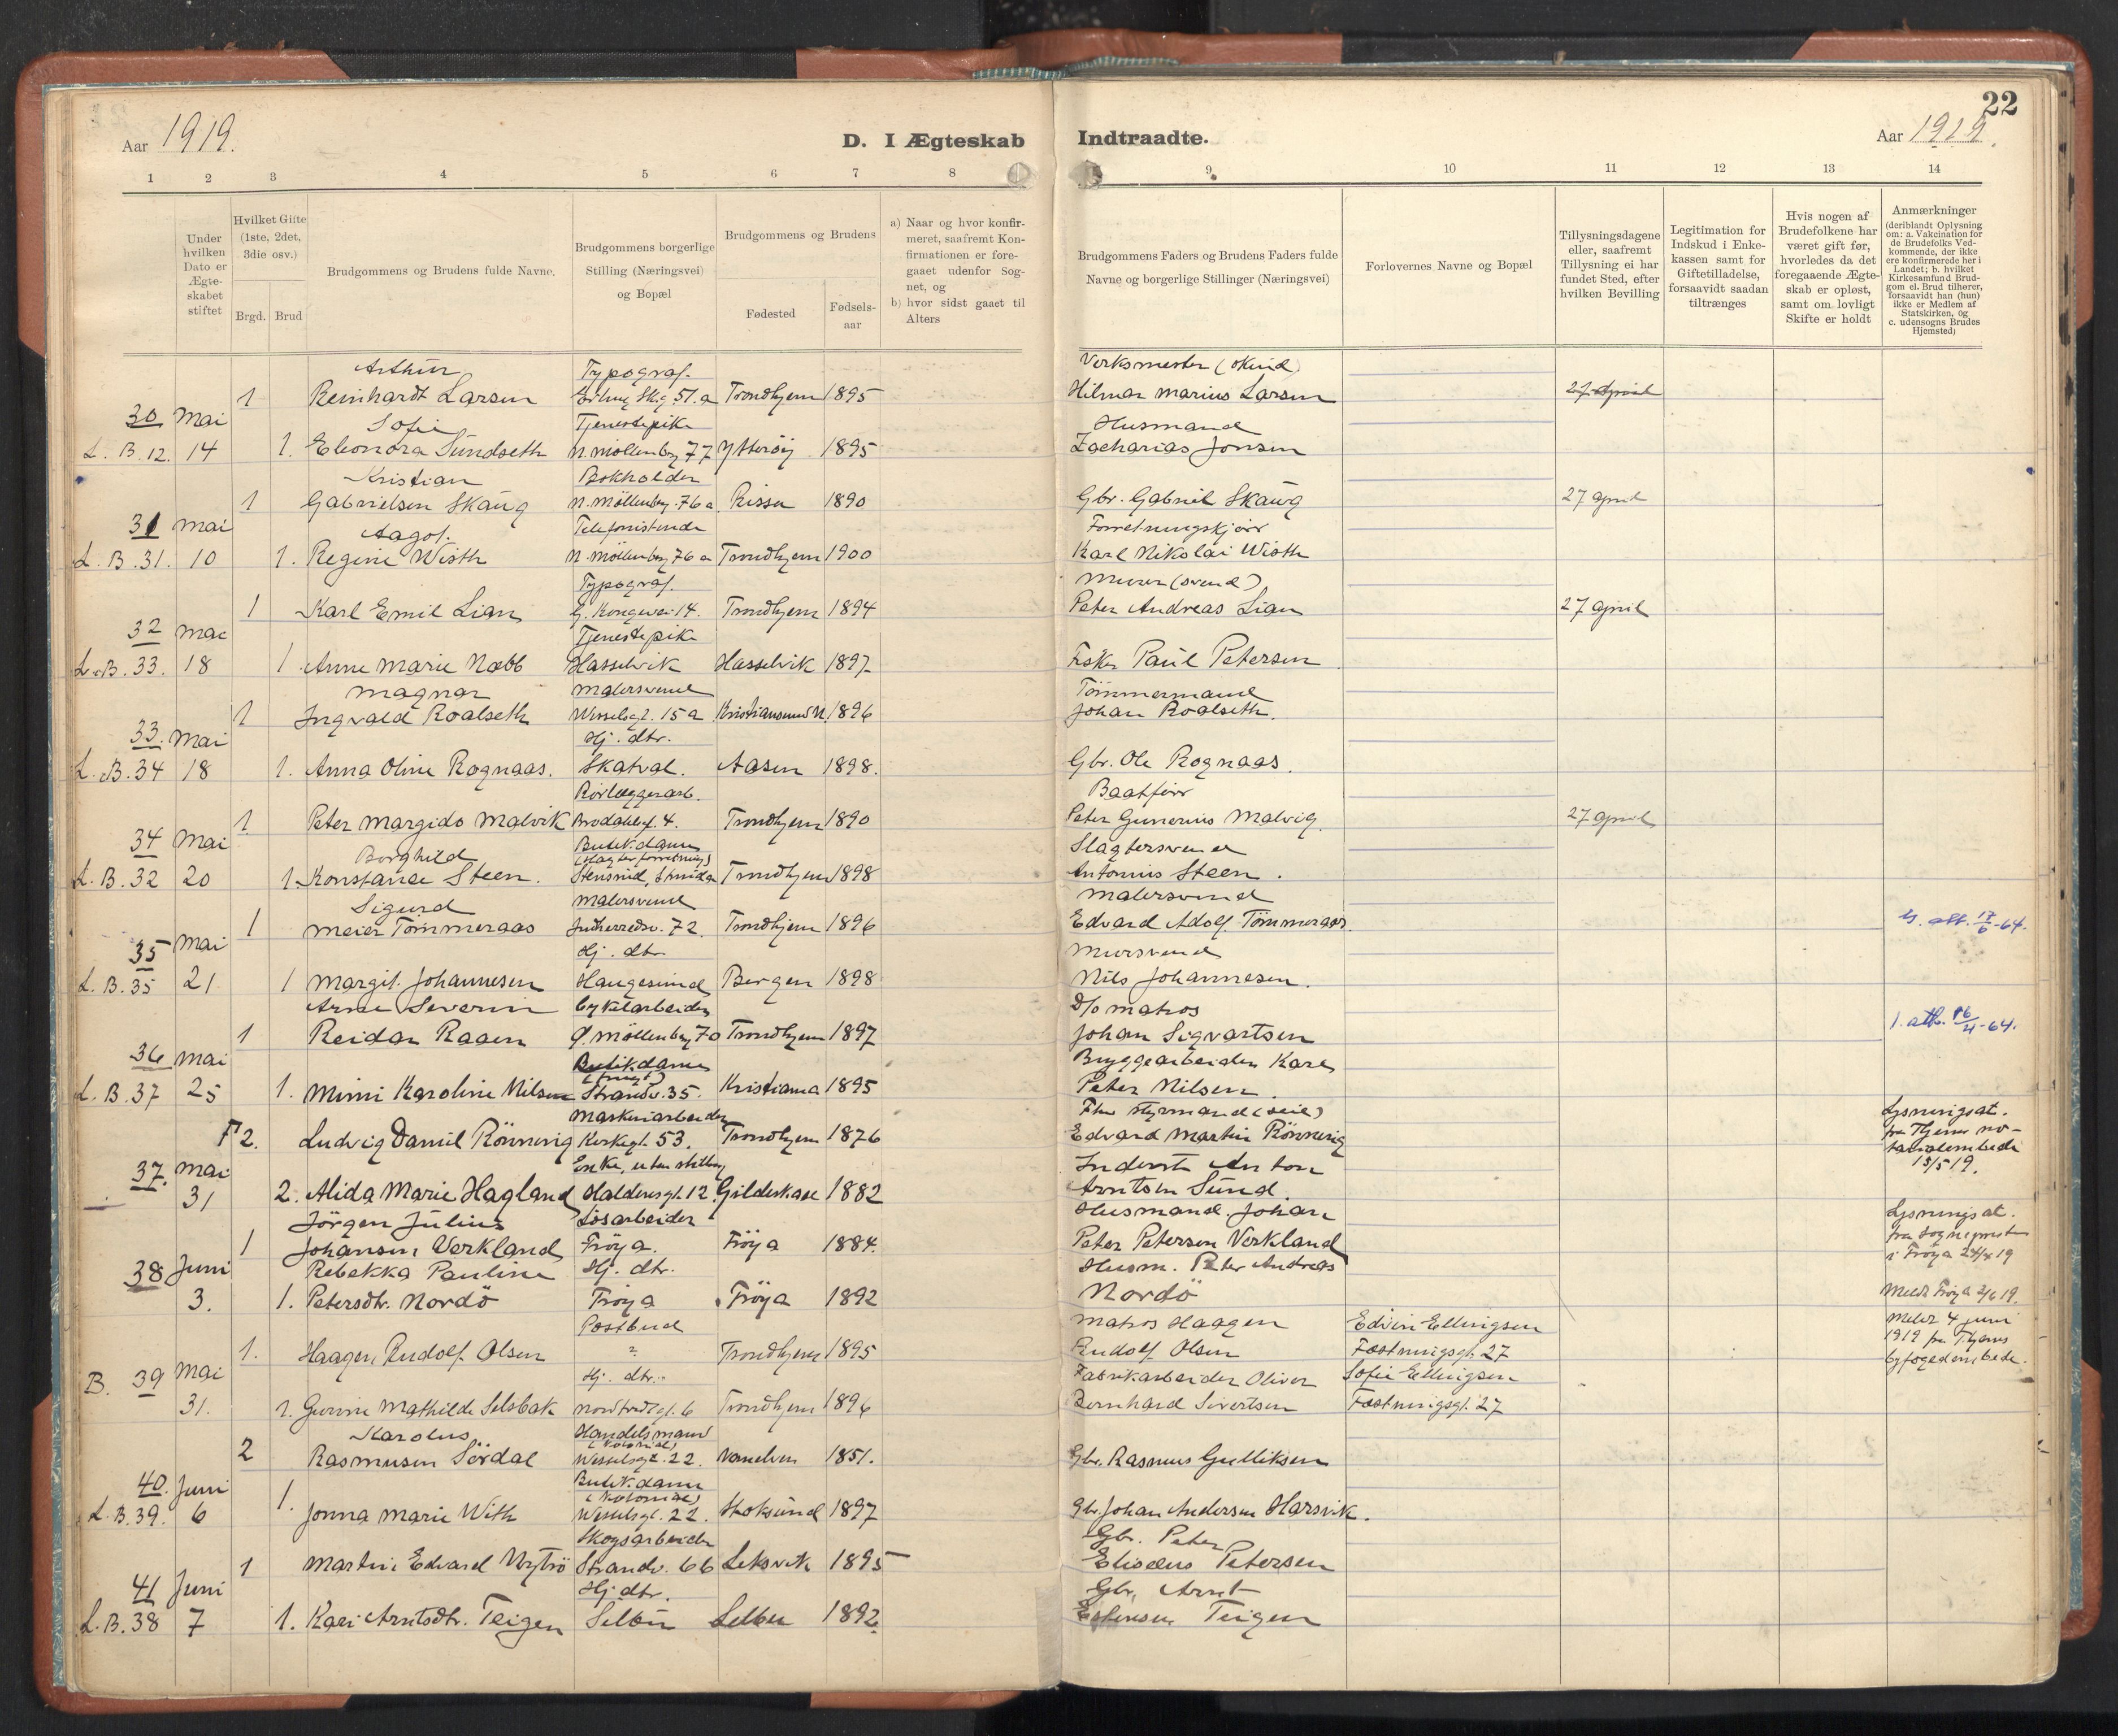 22
Aar 1919.
D. I Ægteskab
Indtraadte.
Aar 1919.
1 2 3 4 5 6 7 8
9 10 11 12 13 14
Under hvilken Dato er Ægte-skabet stiftet
Hvilket Gifte (1ste, 2det, 3die osv.)
Brgd. Brud
Brudgommens og Brudens fulde Navne.
Brudgommens borgerlige Stilling (Næringsvei) og Bopæl
Brudgommens og Brudens
Fødested
Fødsels-aar
a) Naar og hvor konfir-meret, saafremt Kon-firmationen er fore-gaaet udenfor Sog-net, og
b) hvor sidst gaaet til Alters
Brudgommens Faders og Brudens Faders fulde Navne og borgerlige Stillinger (Næringsvei)
Forlovernes Navne og Bopæl
Tillysningsdagene eller, saafremt Tillysning ei har fundet Sted, efter hvilken Bevilling
Legitimation for Indskud i Enke-kassen samt for Giftetilladelse, forsaavidt saadan tiltrænges
Hvis nogen af Brudefolkene har været gift før, hvorledes da det foregaaende Ægte-skab er opløst, samt om lovligt Skifte er holdt
Anmærkninger (deriblandt Oplysning om: a. Vakcination for de Brudefolks Ved-kommende, der ikke ere konfirmerede her i Landet; b. hvilket Kirkesamfund Brud-gom el. Brud tilhører, forsaavidt han (hun) ikke er Medlem af Statskirken, og c. udensogns Brudes Hjemsted)
Arthur Typograf. Verksmester
1 Reinhardt Larsen 51.a Trondhjem 1895 Hilmar Marius Larsen 27 April
30 Mai
Sofie Tjenestepike Husmand
L. B. 12. 14 1. Eleonora Sundseth N. Møllenbg 77 Ytterøy 1895 Zacharias Jonsen
Kristian Bokholder
1 Gabrielsen Skaug N. Møllenbg. 76a Rissa 1890 Gbr. Gabriel Skaug 27 April
31 Mai
Aagot. Telefonistinde Forretningskjører
L. B. 31. 10 1. Regine Wisth N. Møllenbg 76a Trondhjem 1900 Karl Nikolai Wisth
Typograf. Murer (svend)
1 Karl Emil Lian G. Kongevei 14. Trondhjem 1894 Peter Andreas Lian 27 April
32 Mai
Tjenestepike
L. B. 33. 18 1. Anne Marie Næbb Hasselvik Hasselvik 1897 Fisker Paul Petersen
Magnar Malersvend Tømmermand
1 Ingvald Roalseth Wesselsgt. 15a Kristiansund N. 1896 Johan Roalseth.
33. Mai
Hj. dtr.
L. B. 34 18 1. Anna Oline Rognaas. Skatval. Aasen 1898. Gbr. Ole Rognaas.
Rørlæggerarb. Baatfører
1 Peter Margido Malvik 4. Trondhjem 1890 Peter Gunerius Malvig 27 April
34 Mai
Borghild Butikdame (Slagterforretning) Slagtersvend
L. B. 32 20 1. Konstance Steen. Trondhjem 1898 Antonius Steen.
Sigurd Malersvend Malersvend
1 Meier Tømmeraas Indherredsv. 72. Trondhjem 1896 Edvard Adolf Tømmeraas. att. 17/6-64.
35 Mai
Hj. dtr. Mursvend
L. B. 35 21 1 Margit Johannesen Haugesund Bergen 1898 Nils Johannesen.
Arne Severin Cykelarbeider D/o Matros
1 Reidar Raaen Ø. Møllenbg 70 Trondhjem 1897 Johan Sigvartsen 1. att. 16/4-64.
36 Mai
Butikdame (frugt) Bryggearbeider Karl
L. B. 37 25 1. Mimi Karoline Nilsen Strandv. 35. Kristiania 1895 Peter Nilsen.
Maskinarbeider Fhv. Styrmand (seil)
F 2. Ludvig Daniel Rönning Kirkegt. 53. Trondhjem 1876 Edvard Martin Rönning Lysningsat. fra Thjems no-tarialembede 15/5 19.
37. Mai
Enke, uten stilling Inderst Anton
31 2. Alida Marie Hagland 12. Gildeskaal 1882 Arntsen Sund.
Jörgen Julius Lösarbeider Husmand. Johan
1 Johansen Verkland Fröya. Fröya 1884. Peter Petersen Verkland Lysningsat. fra Sogneprest i Fröya 19
38 Juni
Rebekka Pauline Hj. dtr. Husm. Peter Andreas
3. 1. Petersdtr. Nordö Fröya Fröya 1892 Nordö Meldt Fröya 3/6 19.
Postbud Matros Haagen Edvin Ellingsen
1. Haagen Rudolf Olsen " Trondhjem 1895 Rudolf Olsen Fæstningsgt. 27 Meldt 4 juni 1919 fra Thjems byfogedembede.
B. 39 Mai
Hj. dtr. Fabrikarbeider Oliver Sofie Ellingsen
31. 1. Gunine Mathilde Selsbak 6 Trondhjem 1896 Bernhard Sivertsen Fæstningsgt. 27
Karolus Handelsmand (kolonial)
2 Rasmusen Sördal Wesselsgt. 22. Vanelven 1851. Gbr. Rasmus Gulliksen
40. Juni
Butikdame (kolonial)
L. B. 39. 6 1. Jonna Marie With Wesselsgt. 22. Stoksund 1897 Gbr. Johan Andersen Harsvik.
Skogsarbeider Gbr. Peter
1 Martin Edvard Vrytrö Strandv. 66 Leksvik 1895 Eliseus Petersen
41 Juni
Hj. dtr. Gbr. Arnt
L. B. 38 7 1. Kari Arntsdtr. Teigen Selbu Selbu 1892 Estensen Teigen